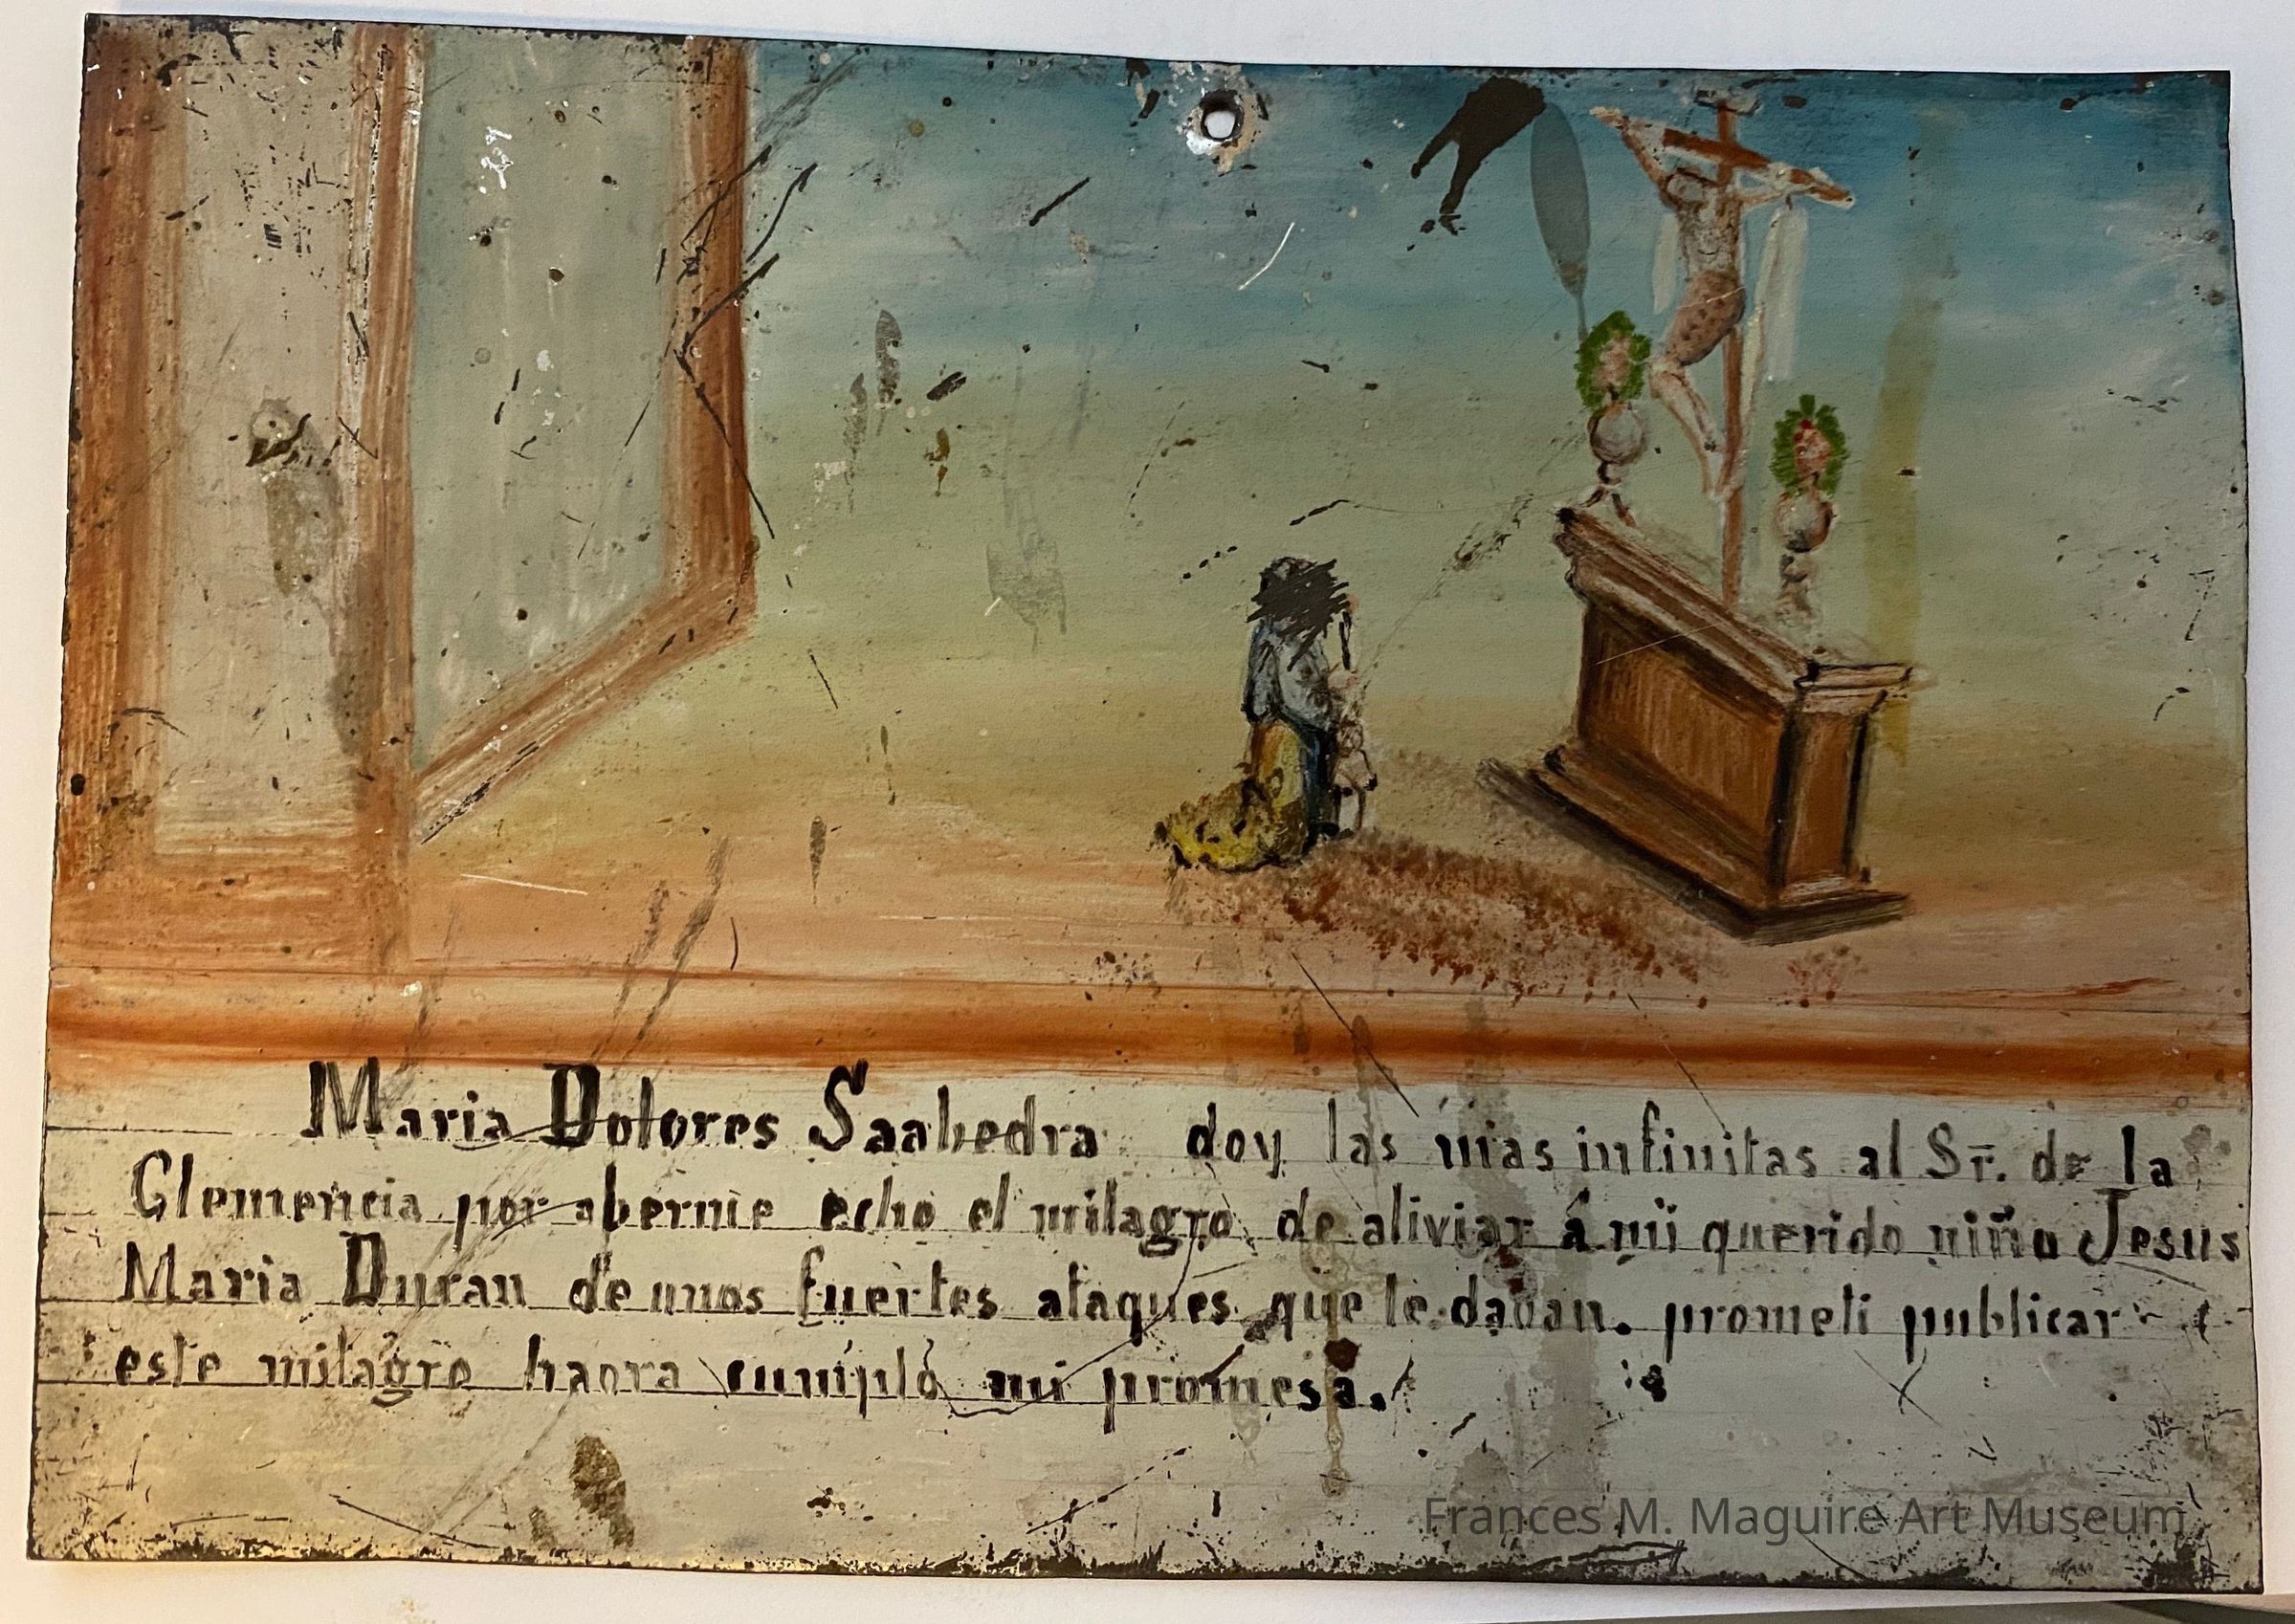 Maria Dolores Saabedra doy las mas infinitas al Sr. de la
Clemencia por aberme echo el milagro de aliviar á mi querido niño Jesus
Maria Duran de unos fuertes ataques que le davan. prometi publicar
este milagro haora cumplo mi promesa.
Frances M. Maguire Art Museum